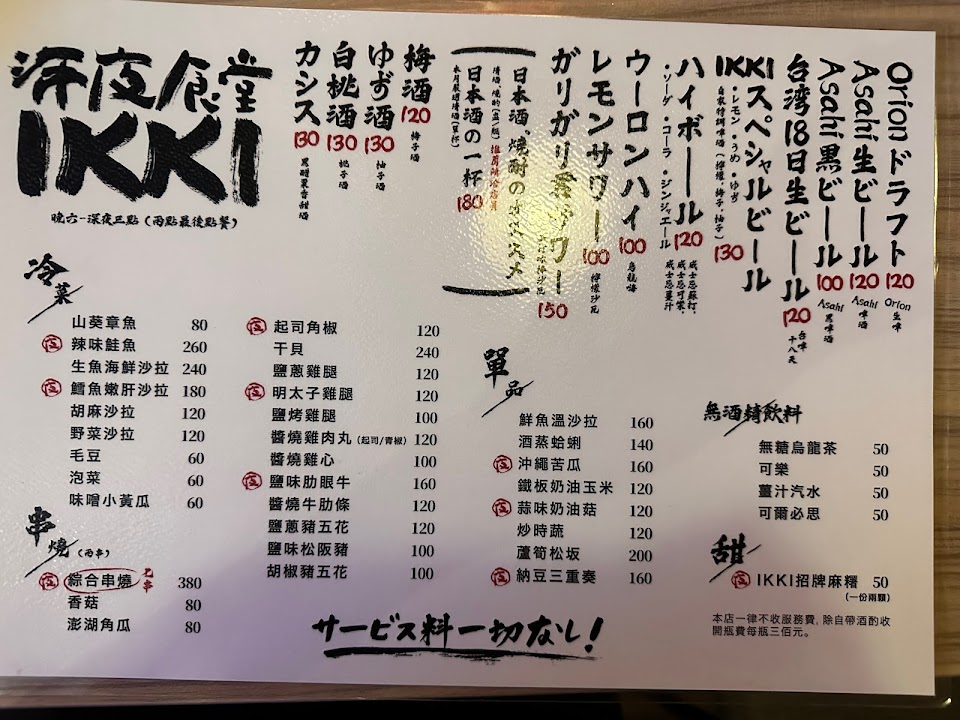 深夜食堂
IKKI
晚六-深夜三點(兩點最後點餐)
Orion ドラフト 120
Orion 生啤
Asahi 生ビール 120
Asahi 啤酒
Asahi 黒ビール 100
Asahi 黑啤酒
台湾18日生ビール 120
台啤十八天
IKKIスペシャルビール 130
・レモン・うめ・ゆず
自家特調啤酒(檸檬・梅子・柚子)
ハイボール 120
・ソーダ・コーラ・ジンジャエール
威士忌蘇打、威士忌可樂、威士忌薑汁
ウーロンハイ 100
烏龍嗨
レモンサワー 100
檸檬沙瓦
ガリガリ サワー 150
日本酒、焼酎のオススメ
推薦請洽店員
日本酒の一杯 180
本月嚴選清酒(單杯)
梅酒 120
梅子酒
ゆず酒 130
柚子酒
白桃酒 130
桃子酒
カシス 130
黑醋栗香甜酒
冷菜
山葵章魚 80
夜 辣味鮭魚 260
生魚海鮮沙拉 240
夜 鱈魚嫩肝沙拉 180
胡麻沙拉 120
野菜沙拉 120
毛豆 60
泡菜 60
味噌小黃瓜 60
串燒(兩串)
夜 綜合串燒 九串 380
香菇 80
澎湖角瓜 80
夜 起司角椒 120
干貝 240
鹽蔥雞腿 120
夜 明太子雞腿 120
鹽烤雞腿 100
醬燒雞肉丸(起司/青椒) 120
醬燒雞心 100
夜 鹽味肋眼牛 160
醬燒牛肋條 120
鹽蔥豬五花 120
鹽味松阪豬 100
胡椒豬五花 100
單品
鮮魚溫沙拉 160
酒蒸蛤蜊 140
夜 沖繩苦瓜 160
鐵板奶油玉米 120
夜 蒜味奶油菇 120
炒時蔬 120
蘆筍松坂 200
夜 納豆三重奏 160
無酒精飲料
無糖烏龍茶 50
可樂 50
薑汁汽水 50
可爾必思 50
甜
夜 IKKI招牌麻糬 50
(一份兩顆)
本店一律不收服務費, 除自帶酒酌收
開瓶費每瓶三佰元。
サービス料一切なし!